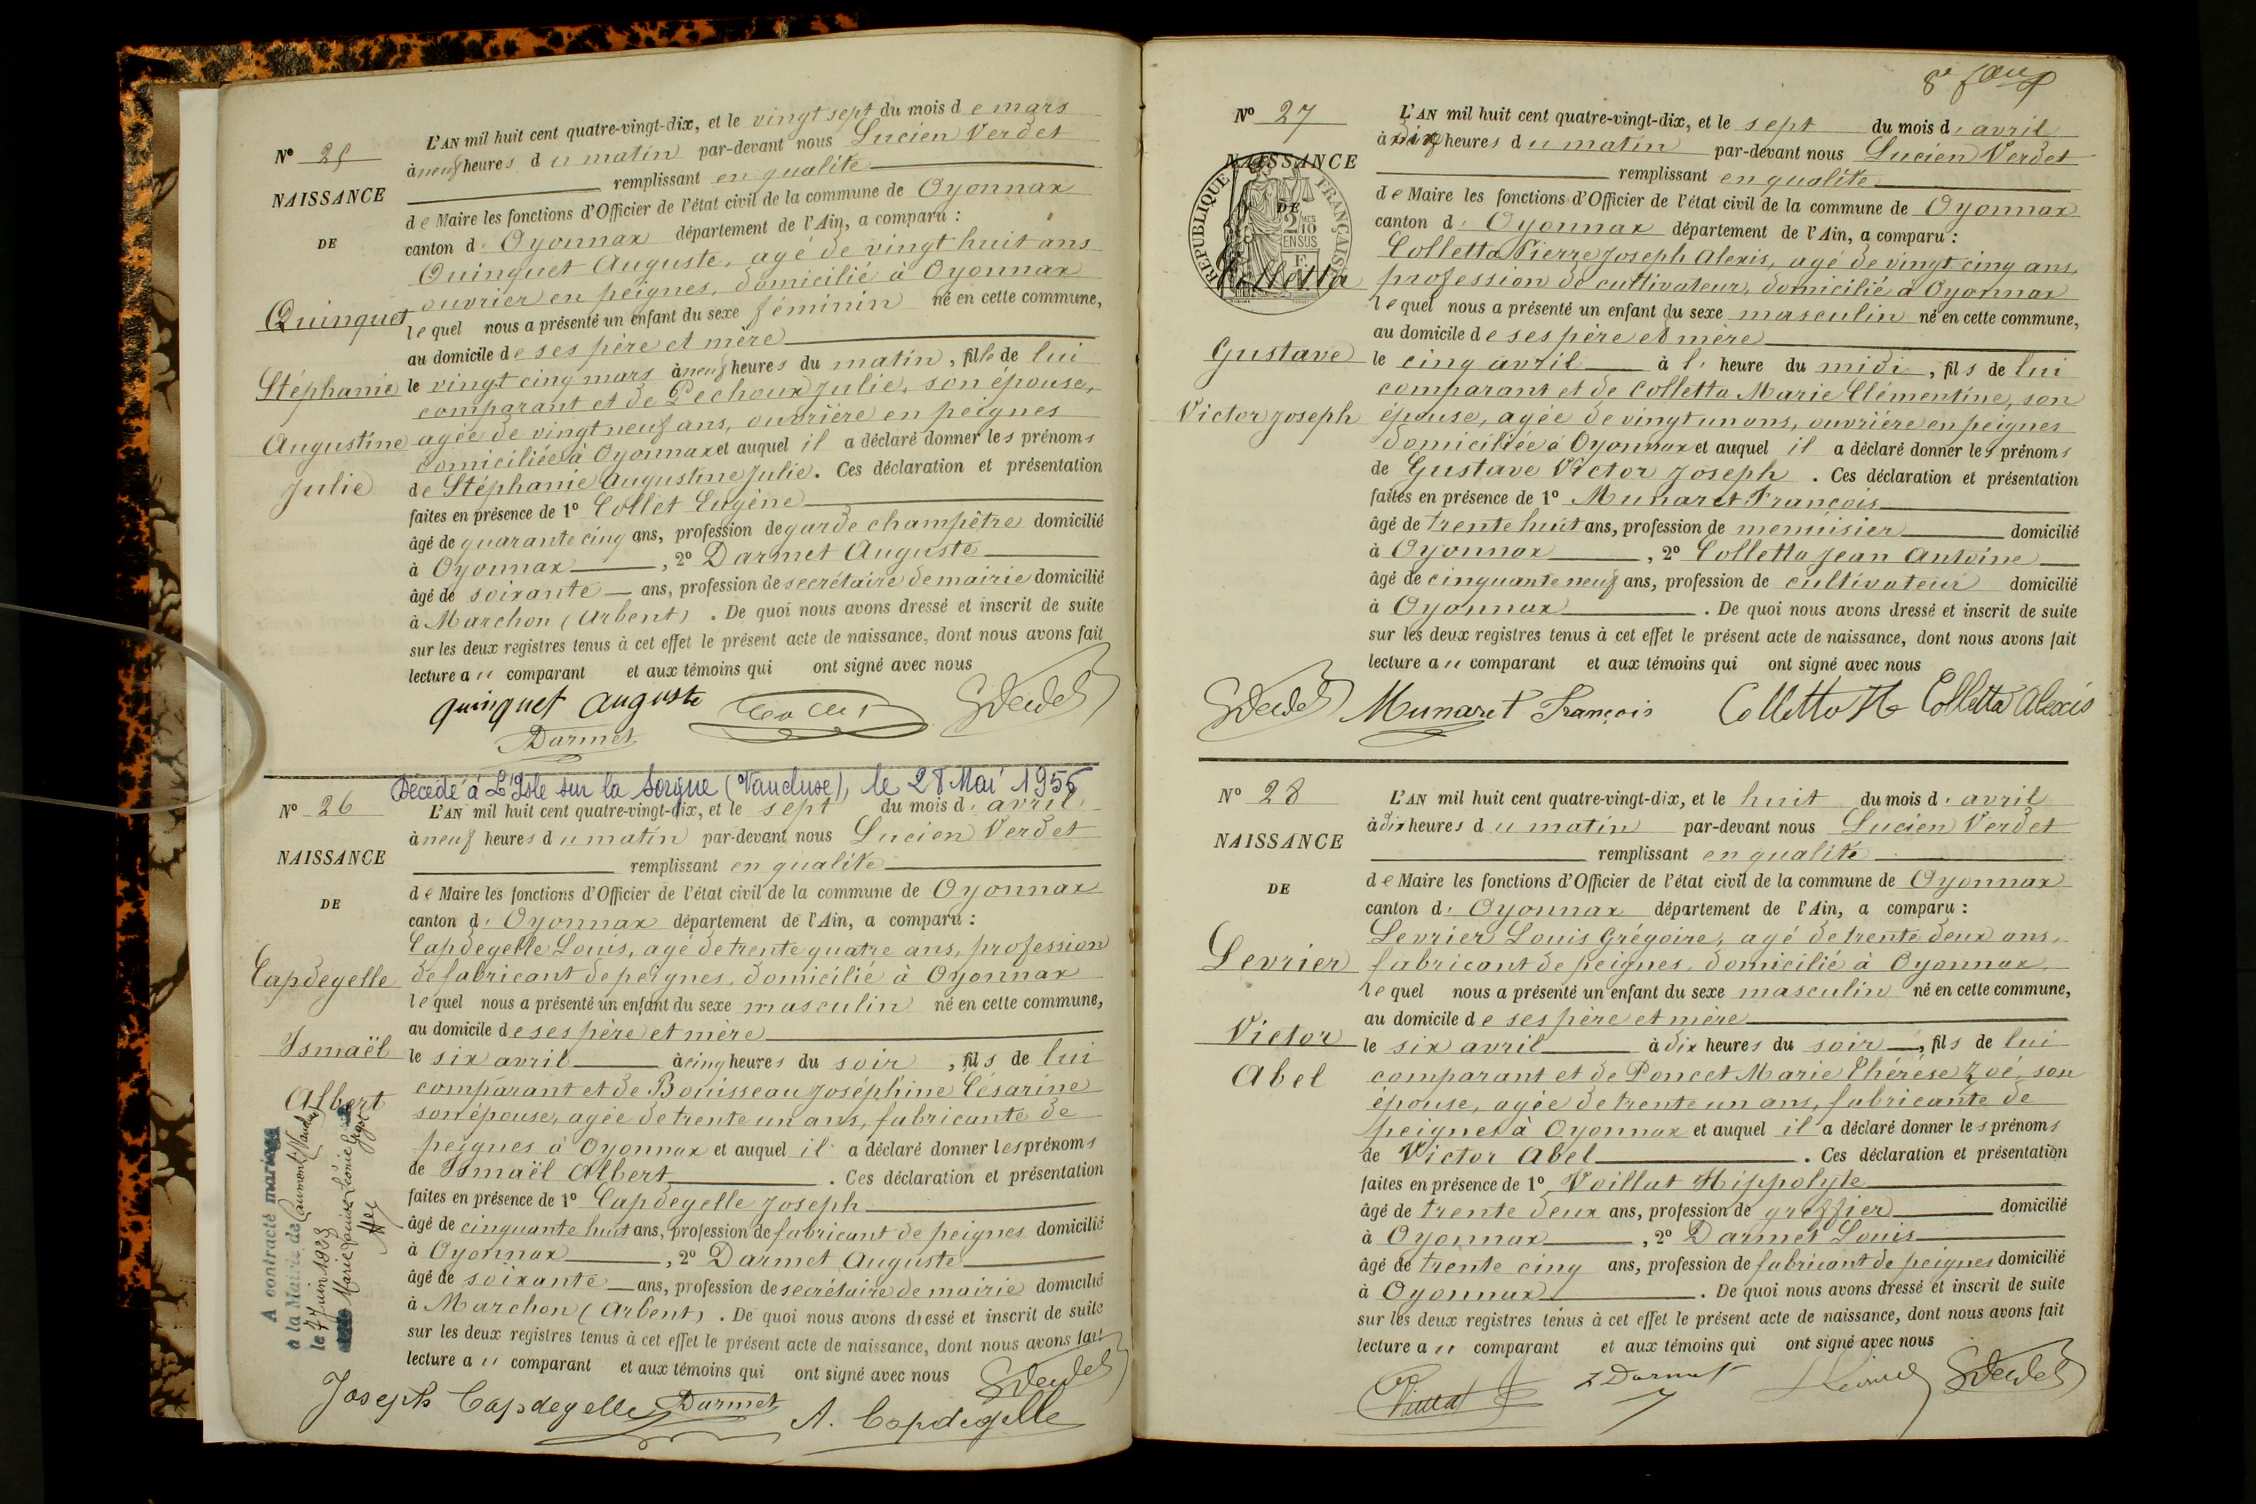 Nº 25
NAISSANCE
DE
Quinquet
Stéphanie
Augustine
Julie
L'AN mil huit cent quatre-vingt-dix, et le vingt sept du mois de mars
à neuf heures du matin par-devant nous Lucien Verdet
remplissant en qualité
de Maire les fonctions d'Officier de l'état civil de la commune de Oyonnax
canton d' Oyonnax département de l'Ain, a comparu :
Quinquet Auguste, agé de vingt huit ans
ouvrier en peignes, domicilié à Oyonnax
lequel nous a présenté un enfant du sexe féminin né en cette commune,
au domicile de ses père et mère
le vingt cinq mars à neuf heures du matin, fille de lui
comparant et de Pechoux Julie, son épouse,
agée de vingt neuf ans, ouvrière en peignes
domiciliée à Oyonnax et auquel il a déclaré donner les prénoms
de Stéphanie Augustine Julie. Ces déclaration et présentation
faites en présence de 1º Collet Eugène
âgé de quarante cinq ans, profession de garde champêtre domicilié
à Oyonnax, 2º Darmet Auguste
âgé de soixante ans, profession de secrétaire de mairie domicilié
à Marchon (Arbent). De quoi nous avons dressé et inscrit de suite
sur les deux registres tenus à cet effet le présent acte de naissance, dont nous avons fait
lecture au comparant et aux témoins qui ont signé avec nous
quinquet auguste
Darmet
Décédé à L'Isle sur la Sorgue (Vaucluse), le 28 Mai 1956
Nº 26
NAISSANCE
DE
Capdegelle
Ismaël
Albert
A contracté mariage
à la Mairie de Caumont (Vaucluse)
le 7 Juin 1923
L'AN mil huit cent quatre-vingt-dix, et le sept du mois d'avril
à neuf heures du matin par-devant nous Lucien Verdet
remplissant en qualité
de Maire les fonctions d'Officier de l'état civil de la commune de Oyonnax
canton d' Oyonnax département de l'Ain, a comparu :
Capdegelle Louis, agé de trente quatre ans, profession
de fabricant de peignes, domicilié à Oyonnax
lequel nous a présenté un enfant du sexe masculin né en cette commune,
au domicile de ses père et mère
le six avril à cinq heures du soir, fils de lui
comparant et de Bouisseau Joséphine Césarine
son épouse, agée de trente un ans, fabricante de
peignes à Oyonnax et auquel il a déclaré donner les prénoms
de Ismaël Albert. Ces déclaration et présentation
faites en présence de 1º Capdegelle Joseph
âgé de cinquante huit ans, profession de fabricant de peignes domicilié
à Oyonnax, 2º Darmet Auguste
âgé de soixante ans, profession de secrétaire de mairie domicilié
à Marchon (Arbent). De quoi nous avons dressé et inscrit de suite
sur les deux registres tenus à cet effet le présent acte de naissance, dont nous avons fait
lecture au comparant et aux témoins qui ont signé avec nous
Joseph Capdegelle Darmet A. Capdegelle
Nº 27
NAISSANCE
DE
RÉPUBLIQUE FRANÇAISE
Colletta
Gustave
Victor Joseph
L'AN mil huit cent quatre-vingt-dix, et le sept du mois d'avril
à dix heures du matin par-devant nous Lucien Verdet
remplissant en qualité
de Maire les fonctions d'Officier de l'état civil de la commune de Oyonnax
canton d' Oyonnax département de l'Ain, a comparu :
Colletta Pierre Joseph Alexis, agé de vingt cinq ans,
profession de cultivateur, domicilié à Oyonnax
lequel nous a présenté un enfant du sexe masculin né en cette commune,
au domicile de ses père et mère
le cinq avril à l' heure du midi, fils de lui
comparant et de Colletta Marie Clémentine, son
épouse, agée de vingt un ans, ouvrière en peignes
domiciliée à Oyonnax et auquel il a déclaré donner les prénoms
de Gustave Victor Joseph. Ces déclaration et présentation
faites en présence de 1º Munaret François
âgé de trente huit ans, profession de menuisier domicilié
à Oyonnax, 2º Colletta Jean Antoine
âgé de cinquante neuf ans, profession de cultivateur domicilié
à Oyonnax. De quoi nous avons dressé et inscrit de suite
sur les deux registres tenus à cet effet le présent acte de naissance, dont nous avons fait
lecture au comparant et aux témoins qui ont signé avec nous
Munaret François Colletta Colletta Alexis
Nº 28
NAISSANCE
DE
Levrier
Victor
Abel
L'AN mil huit cent quatre-vingt-dix, et le huit du mois d'avril
à dix heures du matin par-devant nous Lucien Verdet
remplissant en qualité
de Maire les fonctions d'Officier de l'état civil de la commune de Oyonnax
canton d' Oyonnax département de l'Ain, a comparu :
Levrier Louis Grégoire, agé de trente deux ans,
fabricant de peignes, domicilié à Oyonnax,
lequel nous a présenté un enfant du sexe masculin né en cette commune,
au domicile de ses père et mère
le six avril à dix heures du soir, fils de lui
comparant et de Poncet Marie Thérèse Zoé, son
épouse, agée de trente un ans, fabricante de
peignes à Oyonnax et auquel il a déclaré donner les prénoms
de Victor Abel. Ces déclaration et présentation
faites en présence de 1º Voillat Hippolyte
âgé de trente deux ans, profession de greffier domicilié
à Oyonnax, 2º Darmet Louis
âgé de trente cinq ans, profession de fabricant de peignes domicilié
à Oyonnax. De quoi nous avons dressé et inscrit de suite
sur les deux registres tenus à cet effet le présent acte de naissance, dont nous avons fait
lecture au comparant et aux témoins qui ont signé avec nous
L Darmet